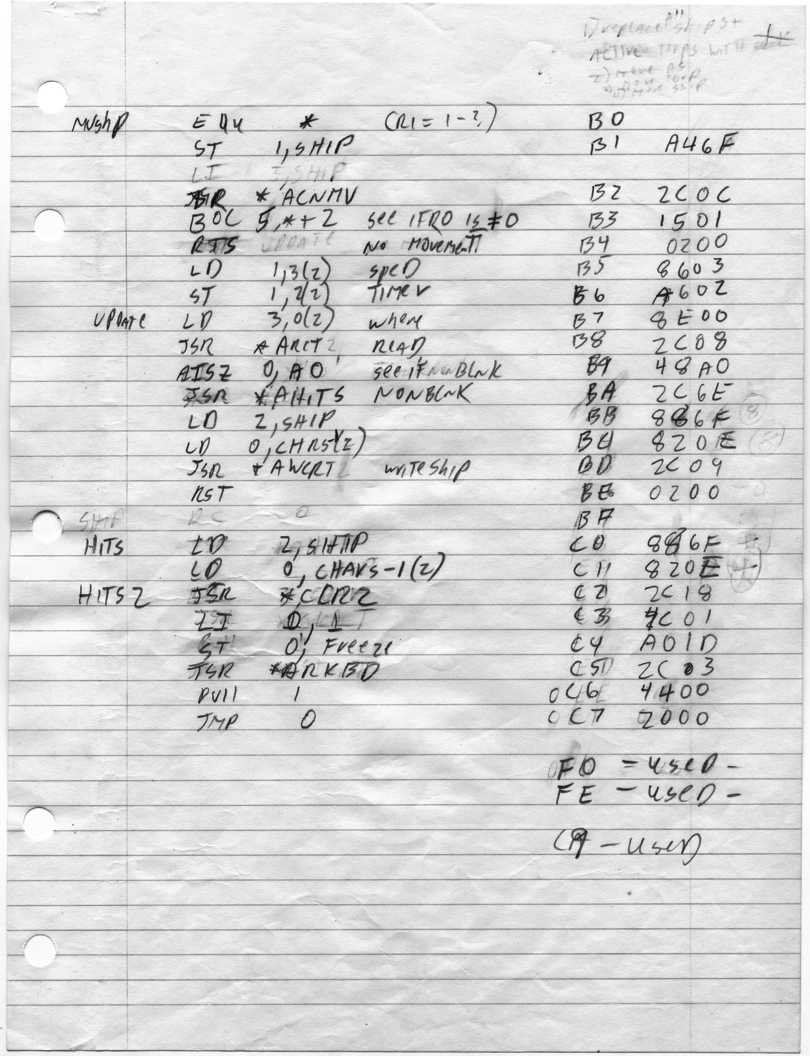 1) replace ships +
Active
2) Move
MVShP EQU * (R1 = 1-?) B0
ST 1,SHIP B1 A46F
LI 1,SHIP
JSR *ACNMV B2 2C0C
BOC 5,*+2 see IFRO is ≠0 B3 1501
RTS UPDATE No Movement B4 0200
LD 1,3(2) speD B5 8603
ST 1,2(2) TIMEV B6 A602
UPDATE LD 3,0(2) where B7 8E00
JSR *ARCT2 READ B8 2C08
AISZ 0,A0 see if NONBLNK B9 48A0
JSR *AHITS NONBLNK BA 2C6E
LD 2,SHIP BB 886F (8)
LD 0,CHRS(2) BC 820E
JSR *AWCRT2 write ship BD 2C09
RST BE 0200
SHIP DC 0 BF
HITS LD 2,SHIP C0 886F
LD 0,CHARS-1(2) C1 820E
HITS2 JSR *CLR2 C2 2C18
LI 0,1 C3 4C01
ST 0,Freeze C4 A01D
JSR *ARKBD C5 2C03
PUll 1 0C6 4400
JMP 0 0C7 2000
F0 = useD -
FE - useD -
CA - useD